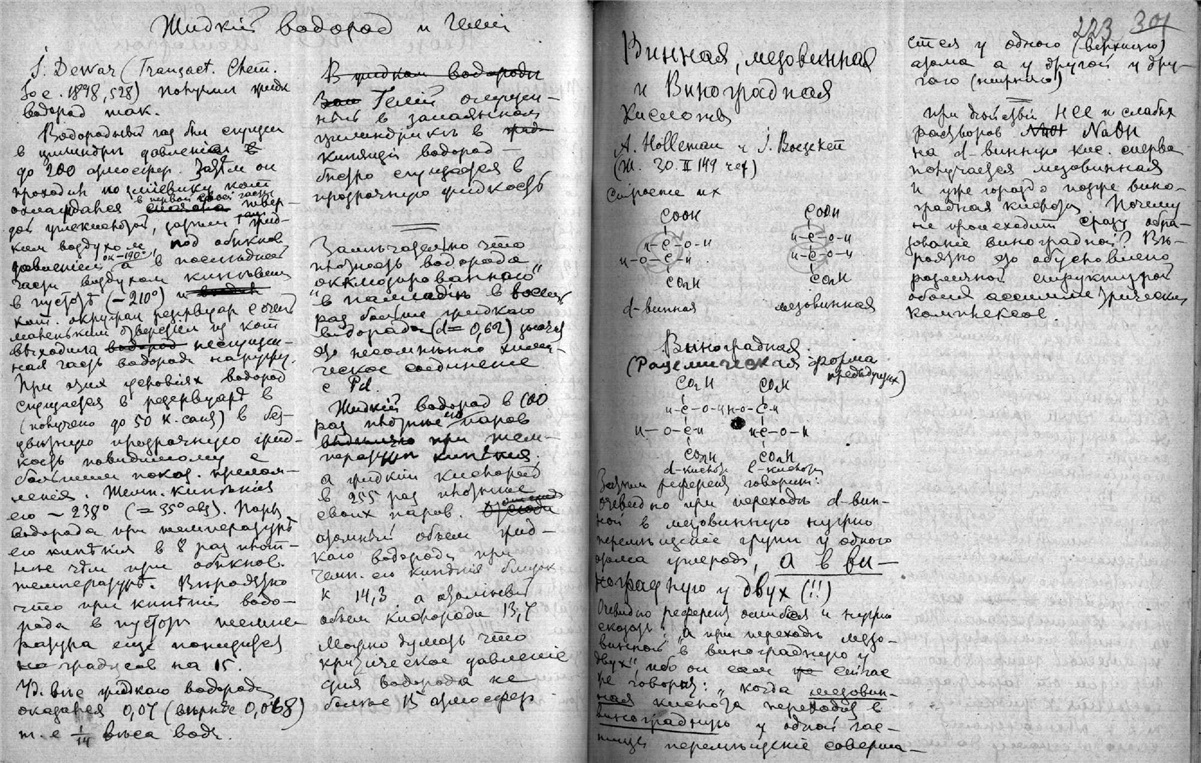 Жидкій водород и Гелій
J. Dewar (Transact. Chem.
Soc. 1898, 528) получил жидк
водород так.
Водородный газ был сгущен
в цилиндры давленіем
до 200 атмосфер. Затѣм он
проходил по змѣевику кот
охлаждался в первой своей части твер-
дой углекислотой, затѣм жид-
ким воздухом под обыкнов.
давленіем, а в последней
части воздухом кипѣвшем
в пустотѣ (–210°) и
кот. окружал резервуар с очень
маленьким отверстіем из кот
выходила водород несгущен-
ная часть водорода наружу.
При этих условіях водород
сгущается в резервуарѣ в
(получено до 50 к. сант) в без-
цвѣтную прозрачную жид-
кость повидимому с
большим показ. прелом-
ленія. Темп. кипѣнія
его – 238° (= 35° абс). Пары
водорода при температурѣ
его кипѣнія в 8 раз плот-
нѣе чѣм при обыкнов.
температурѣ. Вѣроятно
что при кипѣніи водо-
рода в пустотѣ темпе-
ратура еще понизится
градусов на 15.
Уд. вѣс жидкаго водорода
оказался 0,07 (вѣрнѣе 0,068)
т. е 1/14 вѣса воды.
В жидком водороде
Гелій опущен-
ный в запаянном
цилиндрикѣ в
кипящій водород –
быстро сгущается в
прозрачную жидкость
Замѣчательно что
плотность водорода
"окклюдированнаго"
в палладіи в восемь
раз больше жидкаго
водорода (d = 0,62) значит
это несомнѣнно хими-
ческое соединеніе
с Pd.
Жидкій водород в 100
раз плотнѣе его паров
при тем-
пературѣ кипѣнія
а жидкій кислород
в 255 раз плотнѣе
своих паров.
атомный объем жид-
каго водорода при
темп. его кипѣнія близок
к 14,3 а атомный
объем кислорода 13,7
Можно думать что
критическое давленіе
для водорода не
больше 15 атмосфер.
223 301
Винная, мезовинная
и Виноградная
Кислота
A. Holleman
(Ж. 30. II 149 чер)
Строеніе их
COOH COOH
H–C–O–H H–C–O–H
H–O–C–H H–C–O–H
CO₂H CO₂H
d-винная мезовинная
Виноградная
(Рацемическая форма
предыдущих)
CO₂H CO₂H
H–C–O–H H–O–C–H
H–O–C–H HC–O–H
CO₂H CO₂H
d-кислот l-кислот
Затѣм референт говорит:
очевидно при переходѣ d-вин-
ной в мезовинную нужно
перемѣщеніе групп у одного
атома углерода, а в ви-
ноградную у двух (!!)
Очевидно референт ошибся и нужно
сказать: "а при переходѣ мезо-
винной в виноградную у
двух" ибо он сам сейчас
же говорит: "когда мезовин-
ная кислота переходит в
виноградную у одной час-
тицы перемѣщеніе соверша-
ется у одного (верхняго)
атома а у другой у дру-
гого (нижняго)
При дѣйствіи HCl и слабых
растворов NaOH
на d-винную кис. сперва
получается мезовинная
и уже гораздо позже вино-
градная кислоты. Почему
не происходит сразу обра-
зованіе виноградной? Вѣ-
роятно это обусловлено
различной структурой
обоих ассиметрических
комплексов.